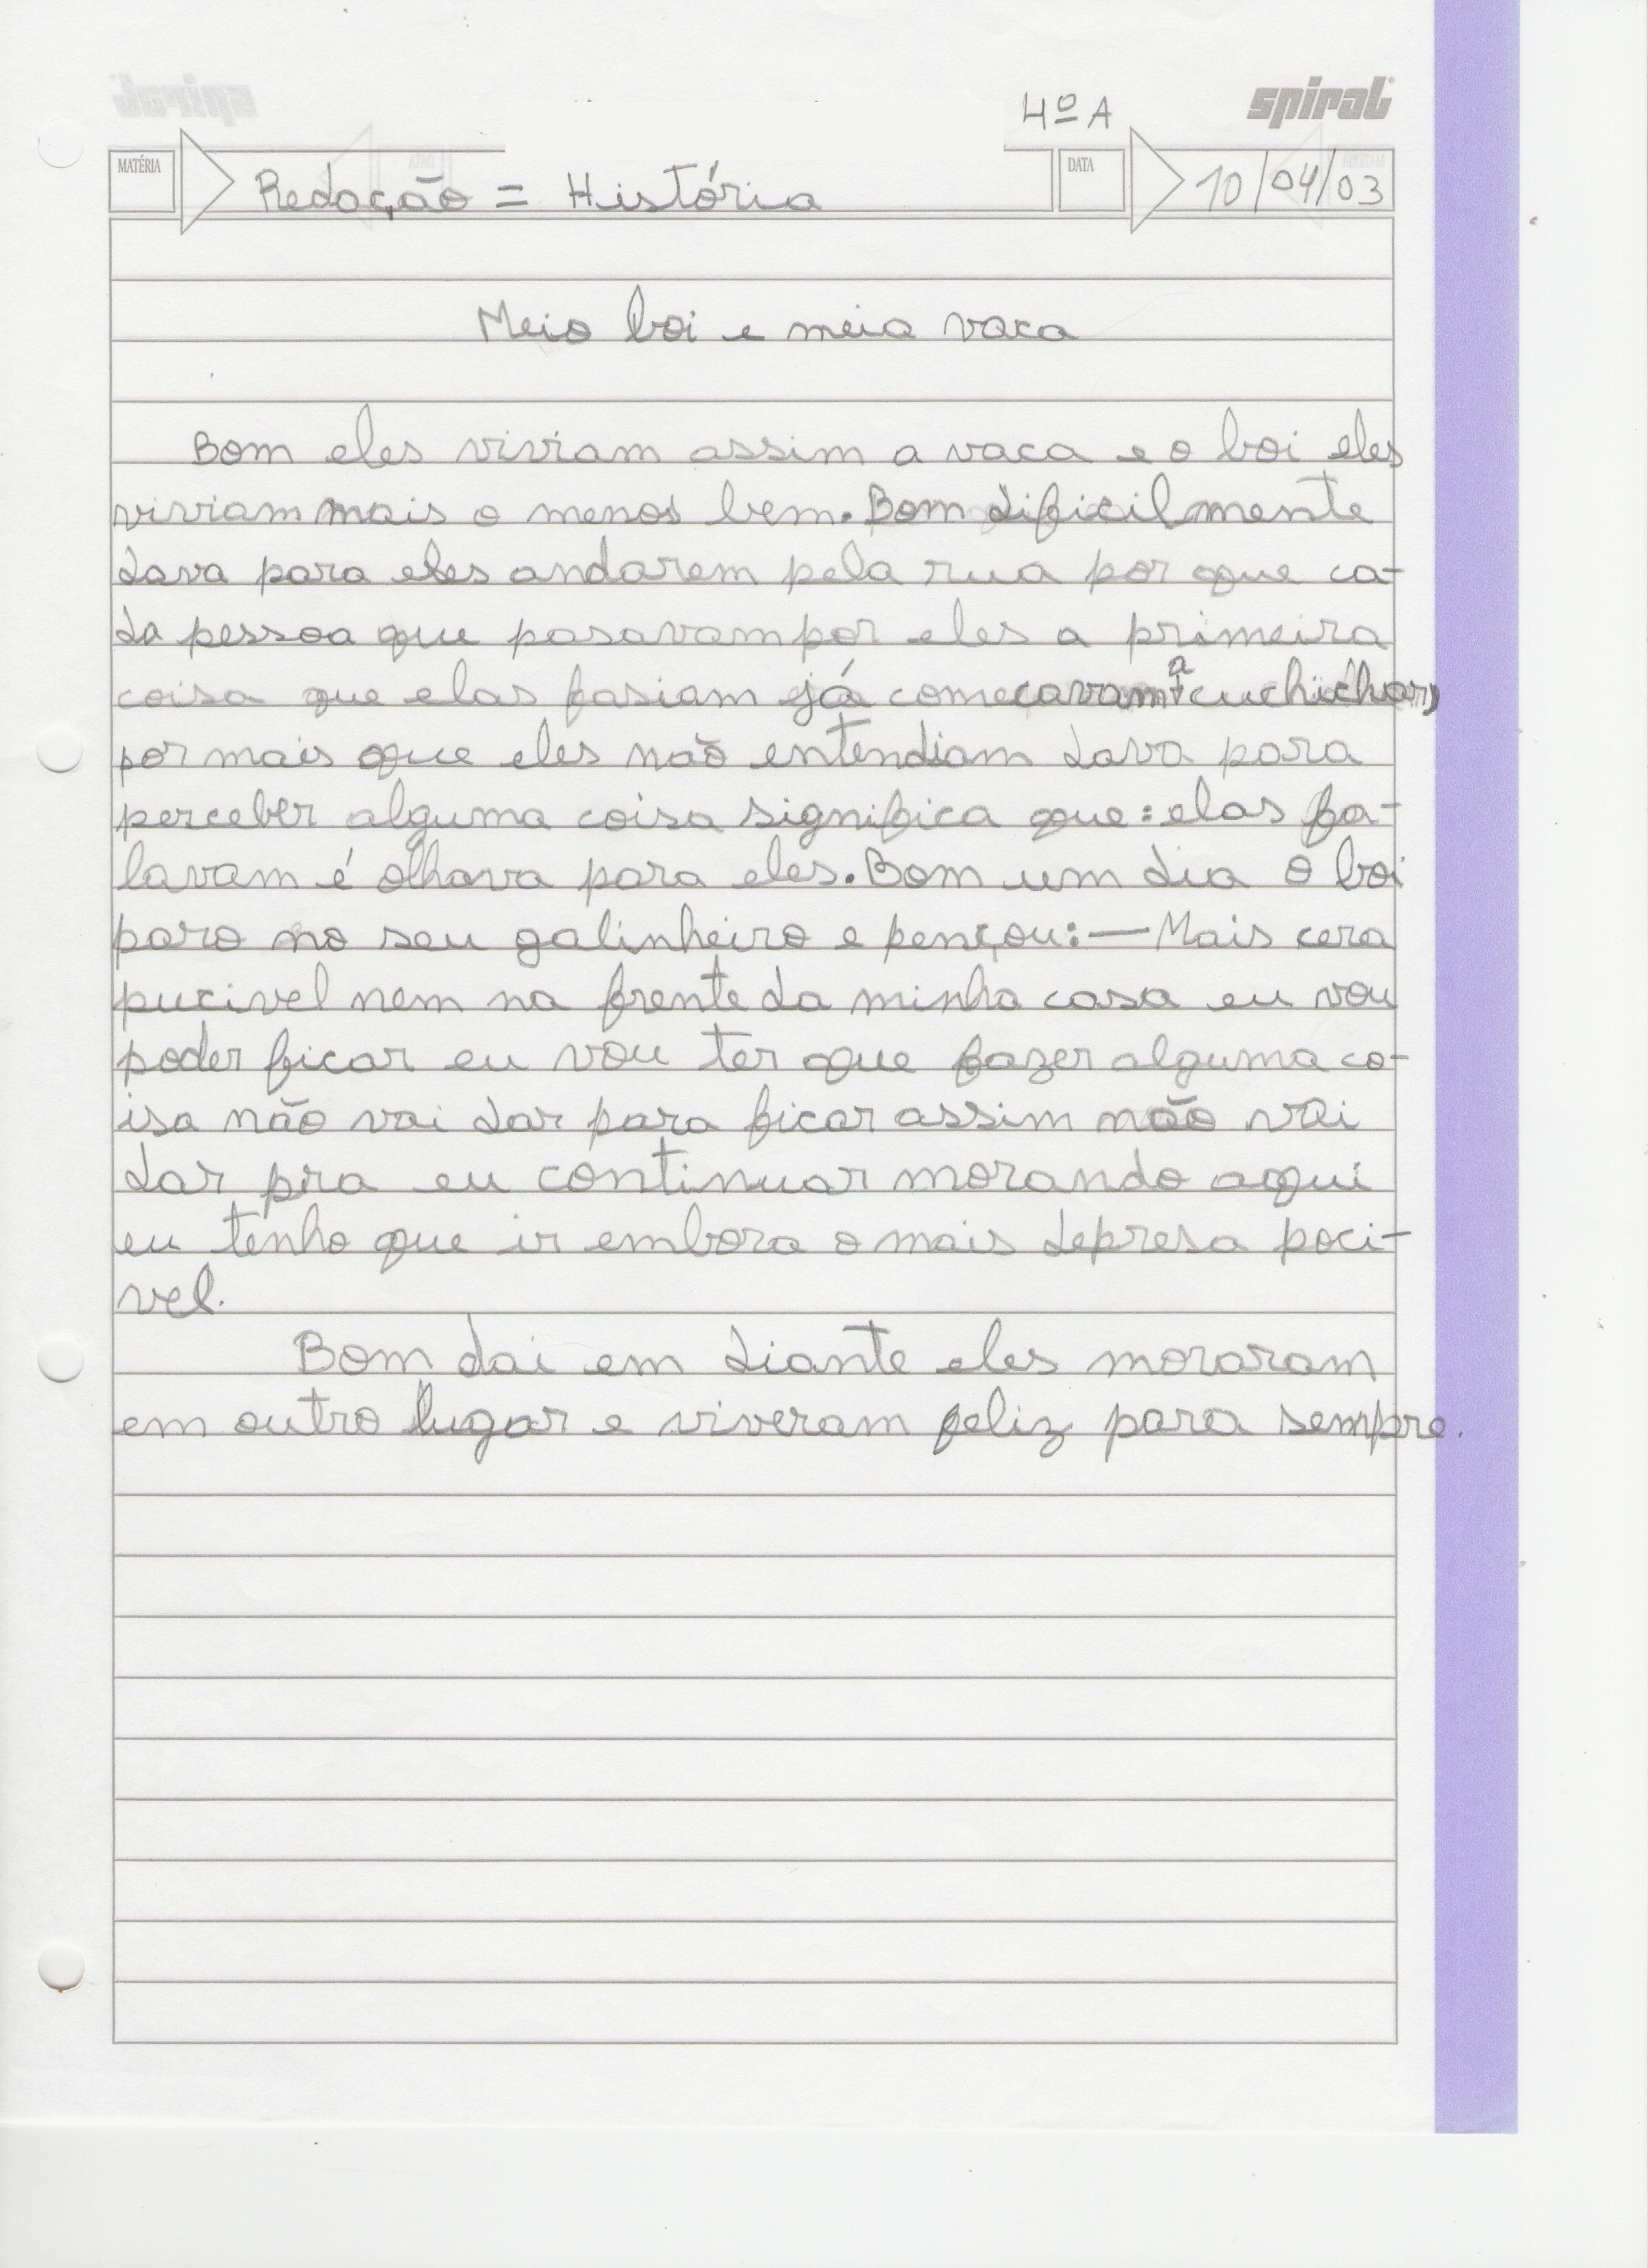 4º A
spiral
MATÉRIA
Redação = História
DATA
10/04/03
Meio boi e meia vaca
Bom eles viviam assim a vaca e o boi eles
viviam mais o menos bem. Bom dificilmente
dava para eles andarem pela rua por que ca-
da pessoa que pasavam por eles a primeira
coisa que elas fasiam já comecavam a cuchichar,
por mais que eles não entendiam dava para
perceber alguma coisa significa que: elas fa-
lavam é olhava para eles. Bom um dia o boi
paro no seu galinheiro e pençou: — Mais cera
pucivel nem na frente da minha casa eu vou
poder ficar eu vou ter que fazer alguma co-
isa não vai dar para ficar assim não vai
dar pra eu continuar morando aqui
eu tenho que ir embora o mais depresa poci-
vel.
Bom dai em diante eles moraram
em outro lugar e viveram feliz para sempre.